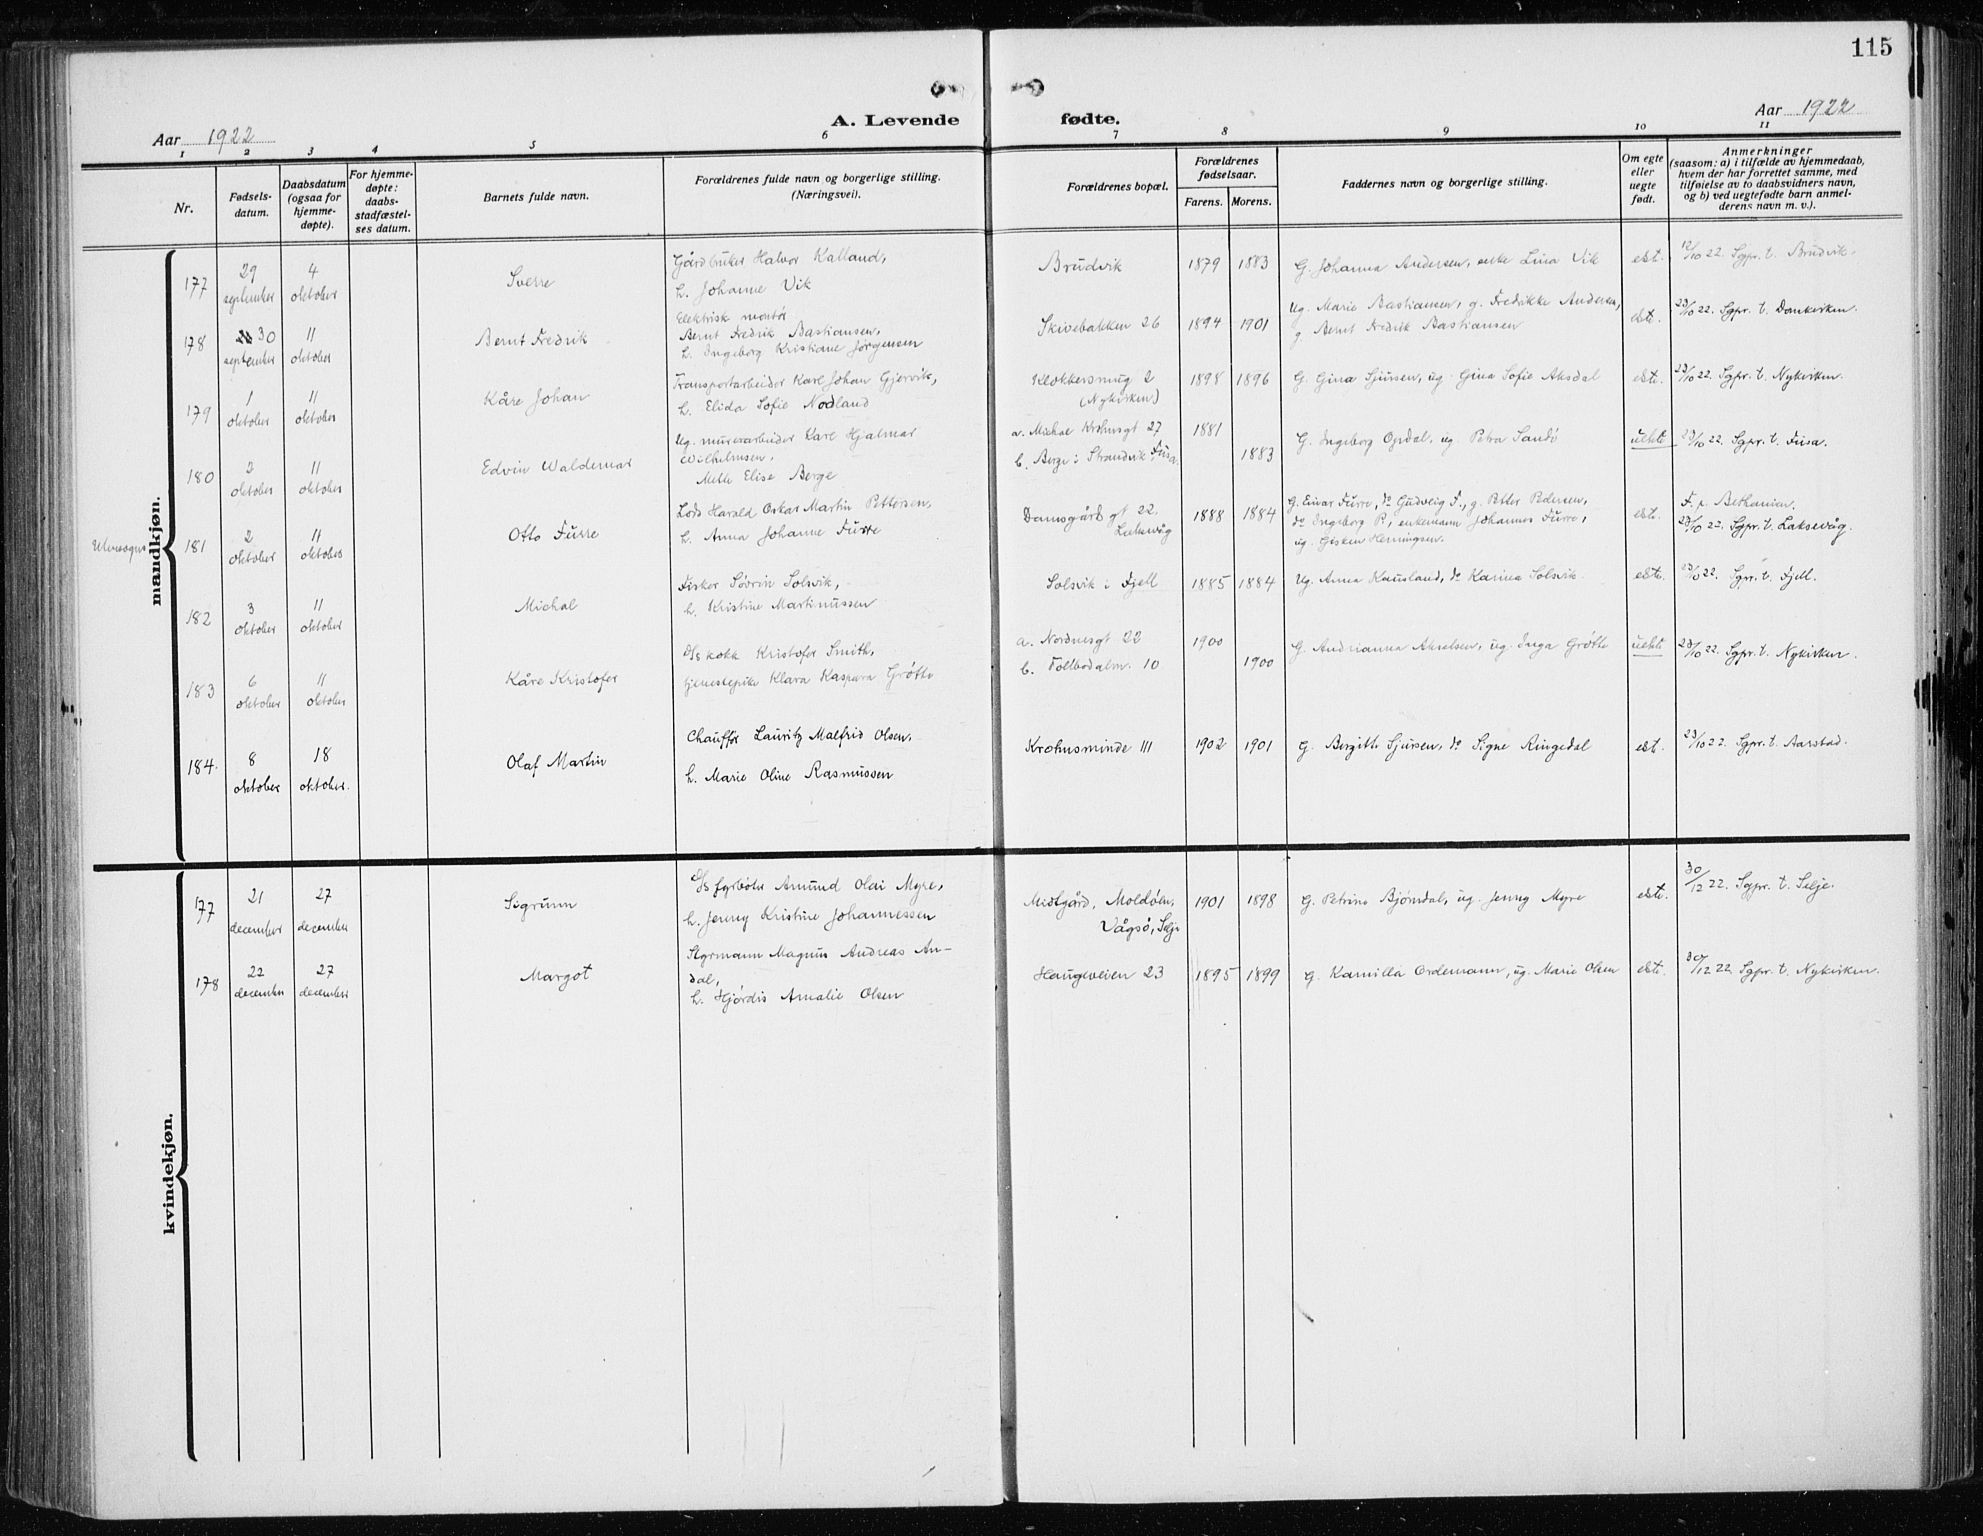 115
Aar 1922
A. Levende fødte.
Aar 1922
1 2 3 4 5 6 7 8 9 10 11
Nr.
Fødsels-
datum.
Daabsdatum
(ogsaa for
hjemme-
døpte).
For hjemme-
døpte:
daabs-
stadfæstel-
ses datum.
Barnets fulde navn.
Forældrenes fulde navn og borgerlige stilling.
(Næringsvei).
Forældrenes bopæl.
Forældrenes
fødselsaar.
Farens. Morens.
Faddernes navn og borgerlige stilling.
Om egte
eller
uegte
født.
Anmerkninger
(saasom: a) i tilfælde av hjemmedaab,
hvem der har forrettet samme, med
tilføielse av to daabsvidners navn,
og b) ved uegtefødte barn anmel-
derens navn m. v.).
mandkjøn.
177
29
september
4
oktober
Sverre
Gårdbruker Halvor Kalland,
h. Johanne Vik
Brudvik
1879 1883
G. Johanna Andersen, enke Lina Vik
ekt.
12/10 22. Sgpr. t. Brudvik.
178
30
september
11
oktober
Bernt Fredrik
Elektrisk montør
Bernt Fredrik Bastiansen,
h. Ingeborg Kristiane Jørgensen
Skivebakken 26
1894 1901
Ug. Marie Bastiansen, g. Fredrikke Andersen,
g. Bernt Fredrik Bastiansen
ekte.
23/10 22. Sgpr. t. Domkirken.
179
1
oktober
11
oktober
Kåre Johan
Transportarbeider Karl Johan Gjervik,
h. Elida Sofie Nodland
Klokkersmug 2
(Nykirken)
1898 1896
G. Gina Sjursen, ug. Gina Sofie Aksdal
ekte.
23/10 22. Sgpr. t. Nykirken.
180
2
oktober
11
oktober
Edvin Waldemar
Ug. murerarbeider Karl Hjalmar
Wilhelmsen,
Mette Elise Berge
a. Michal Krohnsgt 27
b. Berge i Strandvik Fusa.
1881
1883
G. Ingeborg Opdal, ug. Petra Sandø
uekte
23/10 22. Sgpr. t. Fusa.
181
2
oktober
11
oktober
Otto Furre
Lods Harald Oskar Martin Pettersen,
h. Anna Johanne Furre
Damsgård gt 22.
Laksevåg
1888 1884
G. Einar Furre, do Gudveig F., g. Petter Pedersen,
do Ingeborg P., enkemann Johannes Furre,
ug. Gisken Henningsen.
ekte.
F. p. Bethanien.
23/10 22. Sgpr. t. Laksevåg.
182
3
oktober
11
oktober
Michal
Fisker Sövrin Solsvik,
h. Kristine Martinussen
Solsvik i Fjell
1885 1884
Ug. Anna Kausland, do Karina Solsvik.
ekte.
23/10 22. Sgpr. t. Fjell.
183
6
oktober
11
oktober
Kåre Kristofer
D/s kokk Kristofer Smith,
tjenestepike Klara Kaspara Grøtte
a. Nordnesgt 22
b. Tollbodalm. 10
1900
1900
G. Andrianna Akselsen, ug. Inga Grøtte
uekte
23/10 22. Sgpr. t. Nykirken.
184.
8
oktober
18
oktober.
Olaf Martin
Chauffør Lauritz Malfrid Olsen,
h. Marie Oline Rasmussen
Krohnsminde III
1902 1901
G. Bergitte Sjursen, do Signe Ringedal
ekt.
23/10 22. Sgpr. t. Aarstad.
kvindekjøn.
177
21
december
27
december
Sigrunn
D/s fyrbøter Amund Olai Myre,
h. Jenny Kristine Johannessen
Midtgård, Moldøen,
Vågsø, Selje
1901 1898
G. Petrine Bjørndal, ug. Jenny Myre
ekte.
30/12 22. Sgpr. t. Selje.
178
22
december
27
december
Margot
Styrmann Magnus Andreas An-
dal,
h. Hjördis Amalie Olsen
Haugeveien 23
1895 1899
G. Kamilla Ordemann, ug. Marie Olsen
ekte.
30/12 22. Sgpr. t. Nykirken.